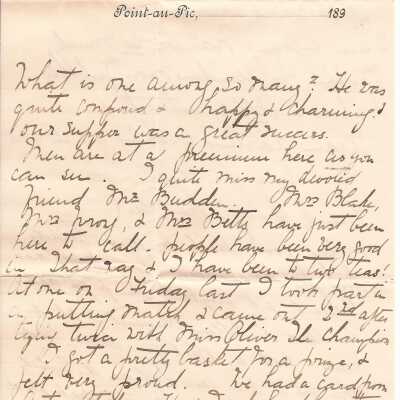 Point-au-Pic, 189
What is one among so many? He was
quite composed & happy & charming &
our supper was a great success.
Men are at a premium here as you
can see. I quite miss my devoted
friend Mr Budden. Mrs Blake,
Mrs & Mrs Betts have just been
here to call. people have been very good
in that way & I have been to two teas!
At one on Friday last I took part in
a putting match & came out 2nd after
tying twice with Miss Oliver the champion
I got a pretty basket for a prize, &
felt very proud. We had a card from